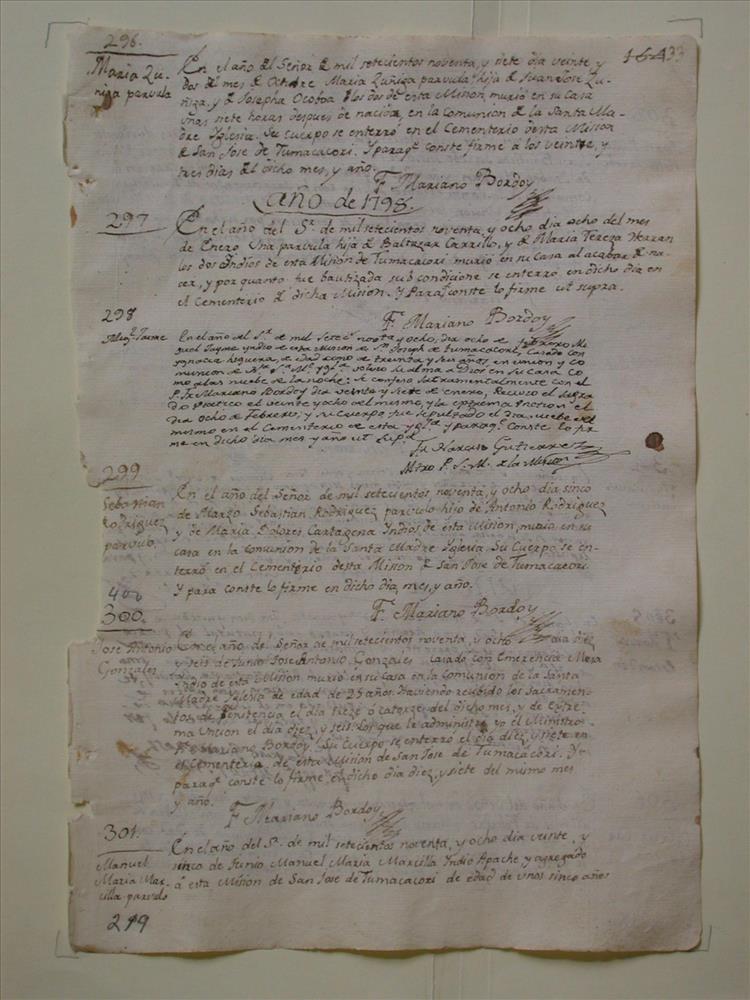 296.
164 133
Maria Zu-
niga parvula
En el año dl Señor de mil setecientos noventa, y siete dia veinte y
dos del mes de Octubre Maria Zuñiga parvula hija de Juan Jose Zu-
ñiga, y de Josepha Ocoboa los dos de esta Mision, murió en su casa
unas siete horas despues de nacida, en la Comunion de la Santa Ma-
dre Yglesia. Su Cuerpo se enterró en el Cementerio desta Mision
de San Jose de Tumacacori. Y paraqe conste firmé á los veinte, y
tres dias dl dicho mes, y año.
F. Mariano Bordoy
año de 1798.
297
En el año del Sr. de mil setecientos noventa, y ocho dia ocho del mes
de Enero Una parvula hija de Baltazar Carrillo, y de Maria Tereza Herran
los dos Indios de esta Mision de Tumacacori murió en su Casa al acabar de na-
cer, y por quanto fue bautizada sub condicione se enterró en dicho dia en
el Cementerio de dicha Mision. Y Paraqe conste lo firme ut supra.
F. Mariano Bordoy
298
Migl. Jayme
En el año del Sr. de mil setecs. novta. y ocho, dia ocho de febrero Mi
guel Jayme yndio de esta Mision de Sn. Joseph de Tumacacori, casado con
ygnacia higuera, de edad como de treinta y seis años en union y co
munion de Nra. Sta. Me. yglesia volvio su alma a Dios en su casa co
mo a las nuebe de la noche: se confeso sacramentalmente con el
P. Fr. Mariano Bordoy dia veinte y siete de enero, Recivio el sagra
do viatico el veinte y ocho del mismo, y la extrema Uncion el
dia ocho de Febrero, y su cuerpo fue sepultado el dia nuebe del
mismo en el Cementerio de esta yglesia y paraqe. Conste lo fir
me en dicho dia mes y año ut supa.
Fr. Narciso Gutierrez
Mtro P. S. M. de la Mision
299
Sebastian
Rodriguez
parvulo.
En el año del Señor de mil setecientos noventa, y ocho dia sinco
de Marzo Sebastian Rodriguez parvulo hijo de Antonio Rodriguez
y de Maria Dolores Cartagena Indios de esta Mision, murio en su
casa en la Comunion de la Santa Madre Iglesia. Su Cuerpo se en-
terró en el Cementerio desta Mision de San Jose de Tumacacori
Y para conste lo firme en dicho dia, mes, y año.
F. Mariano Bordoy
400
300.
Jose Antonio
Gonzales
En el año de Señor de mil setecientos noventa, y ocho dia diez
y seis de Junio Jose Antonio Gonzales casado con Emerencia Mesa
Indio de esta Mision murió en su casa en la Comunion de la Santa
Madre Iglesia de edad de 25 años. Haviendo recibido los Sacramen-
tos de Penitencia el dia treze ó catorze del dicho mes, y de Extre-
ma Uncion el dia diez, y seis. Los que le administre yo el Ministro
F. Mariano Bordoy. Su Cuerpo se enterró el dia diez, y siete en
el Cementerio de esta Mision de San Jose de Tumacacori. Y
paraqe conste lo firme en dicho dia diez, y siete del mismo mes
y año.
F. Mariano Bordoy
301.
Manuel
Maria Mar-
cilla parvulo
En el año del Sr. de mil setecientos noventa, y ocho dia veinte, y
sinco de Junio Manuel Maria Marcilla Indio Apache y agregado
á esta Mision de San Jose de Tumacacori de edad de unos sinco años
219